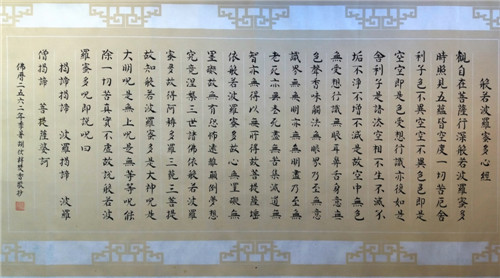 般若波羅蜜多心經
觀自在菩薩行深般若波羅蜜多
時照見五蘊皆空度一切苦厄舍
利子色不異空空不異色色即是
空空即是色受想行識亦復如是
舍利子是諸法空相不生不滅不
垢不淨不增不減是故空中無色
無受想行識無眼耳鼻舌身意無
色聲香味觸法無眼界乃至無意
識界無無明亦無無明盡乃至無
老死亦無老死盡無苦集滅道無
智亦無得以無所得故菩提薩埵
依般若波羅蜜多故心無罣礙無
罣礙故無有恐怖遠離顛倒夢想
究竟涅槃三世諸佛依般若波羅
蜜多故得阿耨多羅三藐三菩提
故知般若波羅蜜多是大神呪是
大明呪是無上呪是無等等呪能
除一切苦真實不虛故說般若波
羅蜜多呪即說呪曰
揭諦揭諦 波羅揭諦 波羅
僧揭諦 菩提薩婆訶
佛曆二五六二年季春胡 敬抄